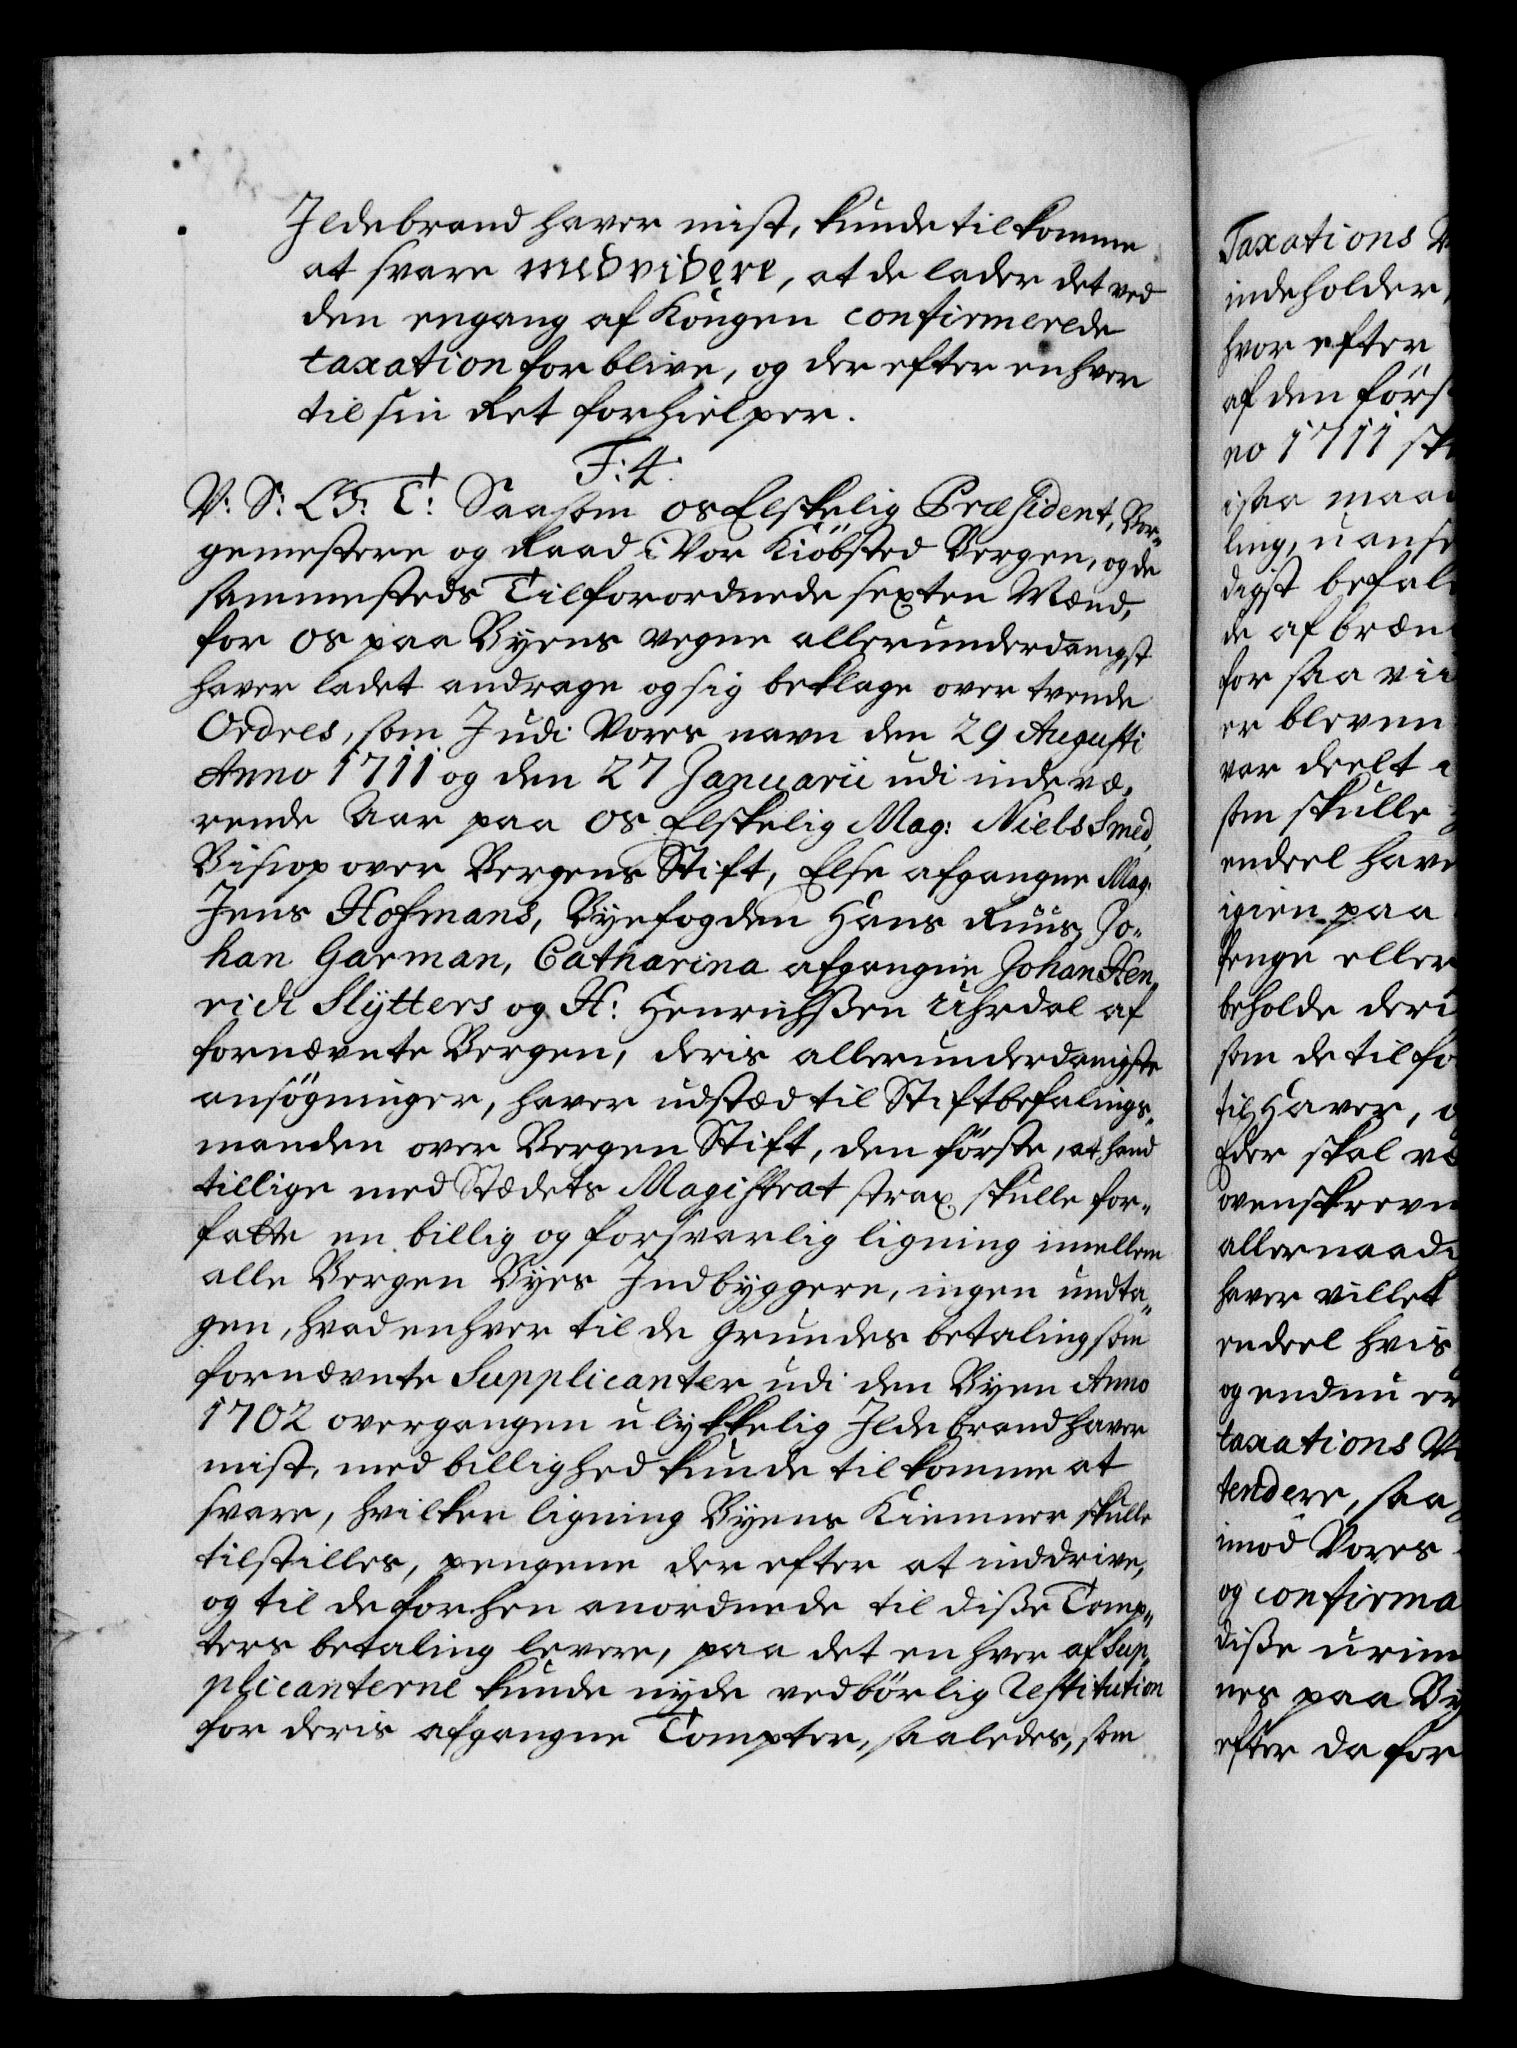 Ildebrand haver mist, kunde tilkomme
at svare med videre, at de lader det ved
den engang af Kongen confirmerede
taxation forblive, og der efter enhver
til sin Ret forhielper.
F: 4.
V: S: G: T: Saasom os Elskelig Præsident, Bor-
gemestere og Raad i Vor Kiöbsted Bergen, og de
sammesteds Tilforordnede sexten Mænd,
for os paa Byens vegne allerunderdanigst
haver ladet andrage og sig beklage over tvende
Ordres, som I udi Vores navn den 29 Augusti
Anno 1711 og den 27 Januarii udi indevæ-
rende Aar paa os Elskelig Mag: Niels Smed,
Bisiop over Bergens Stift, Else afgangne Mag:
Jens Hofmans, Byefogden Hans Ruus, Jo-
han Garman, Catharina afgangne Johan Hen-
rich Slÿtters og H: Henrichssen Uhrdal af
fornævnte Bergen, deris allerunderdanigste
ansögninger, haver udstæd til Stiftbefalings-
manden over Bergen Stift, den förste, at hand
tillige med Stædets Magistrat strax skulle for-
fatte en billig og forsvarlig ligning imellem
alle Bergen Byes Indbyggere, ingen undta-
gen, hvad enhver til de grundes betaling som
fornævnte Supplicanter udi den Byen Anno
1702 overgangen ulykkelig Ildebrand haver
mist, med billighed kunde tilkomme at
svare, hvilken ligning Byens Kiemner skulle
tilstilles, pengene der efter at inddrive,
og til de forhen anordnede til disse Tomp-
ters betaling levere, paa det enhver af Sup-
plicanterne kunde nyde vedbörlig Restitution
for deris afgangne Tompter, saaledes, som
Taxations
indeholder,
hvor efter
af den först
no 1711
isaa maa
ling, uanse
digst befal
de afbræn
for saa vii
er bleven
var deelt
som skulle
endeel have
igien paa
penge eller
beholde deri
som de tilfo
til Haver,
Eder skal
ovenskrevn
allernaad
haver villet
endeel hvis
og endnu er
taxations
tendere, saa
imod Vores
og confirma
disse urim
nes paa By
efter da for